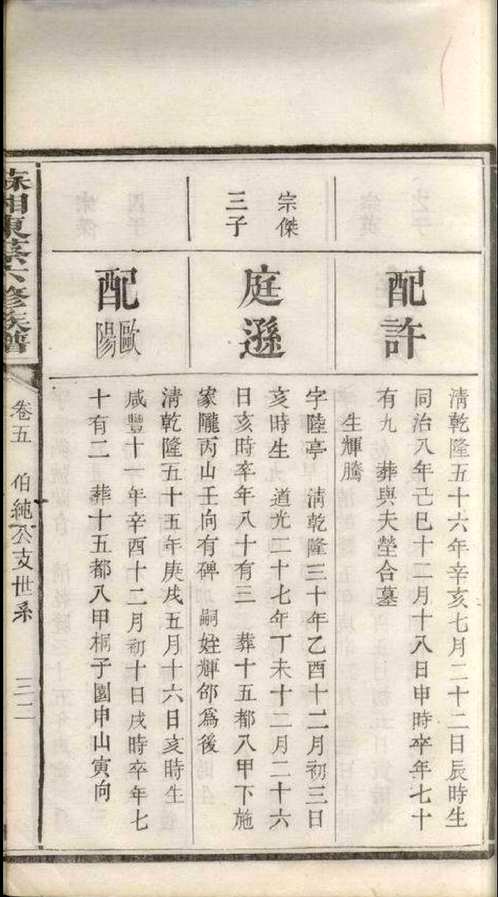 配許
清乾隆五十六年辛亥七月二十二日辰時生
同治八年己巳十二月十八日申時卒年七十
有九 葬與夫塋合墓
生輝騰
宗傑
三子
庭遜
字陸亭 清乾隆三十年乙酉十二月初三日
亥時生 道光二十七年丁未十二月二十六
日亥時卒年八十有三 葬十五都八甲下施
家隴丙山壬向有碑 嗣姪輝郃為後
配歐陽
清乾隆五十五年庚戌五月十六日亥時生
咸豐十一年辛酉十二月初十日戌時卒年七
十有二 葬十五都八甲桐子園申山寅向
湘東蔡六修族譜
卷五 伯純公支世系 三二